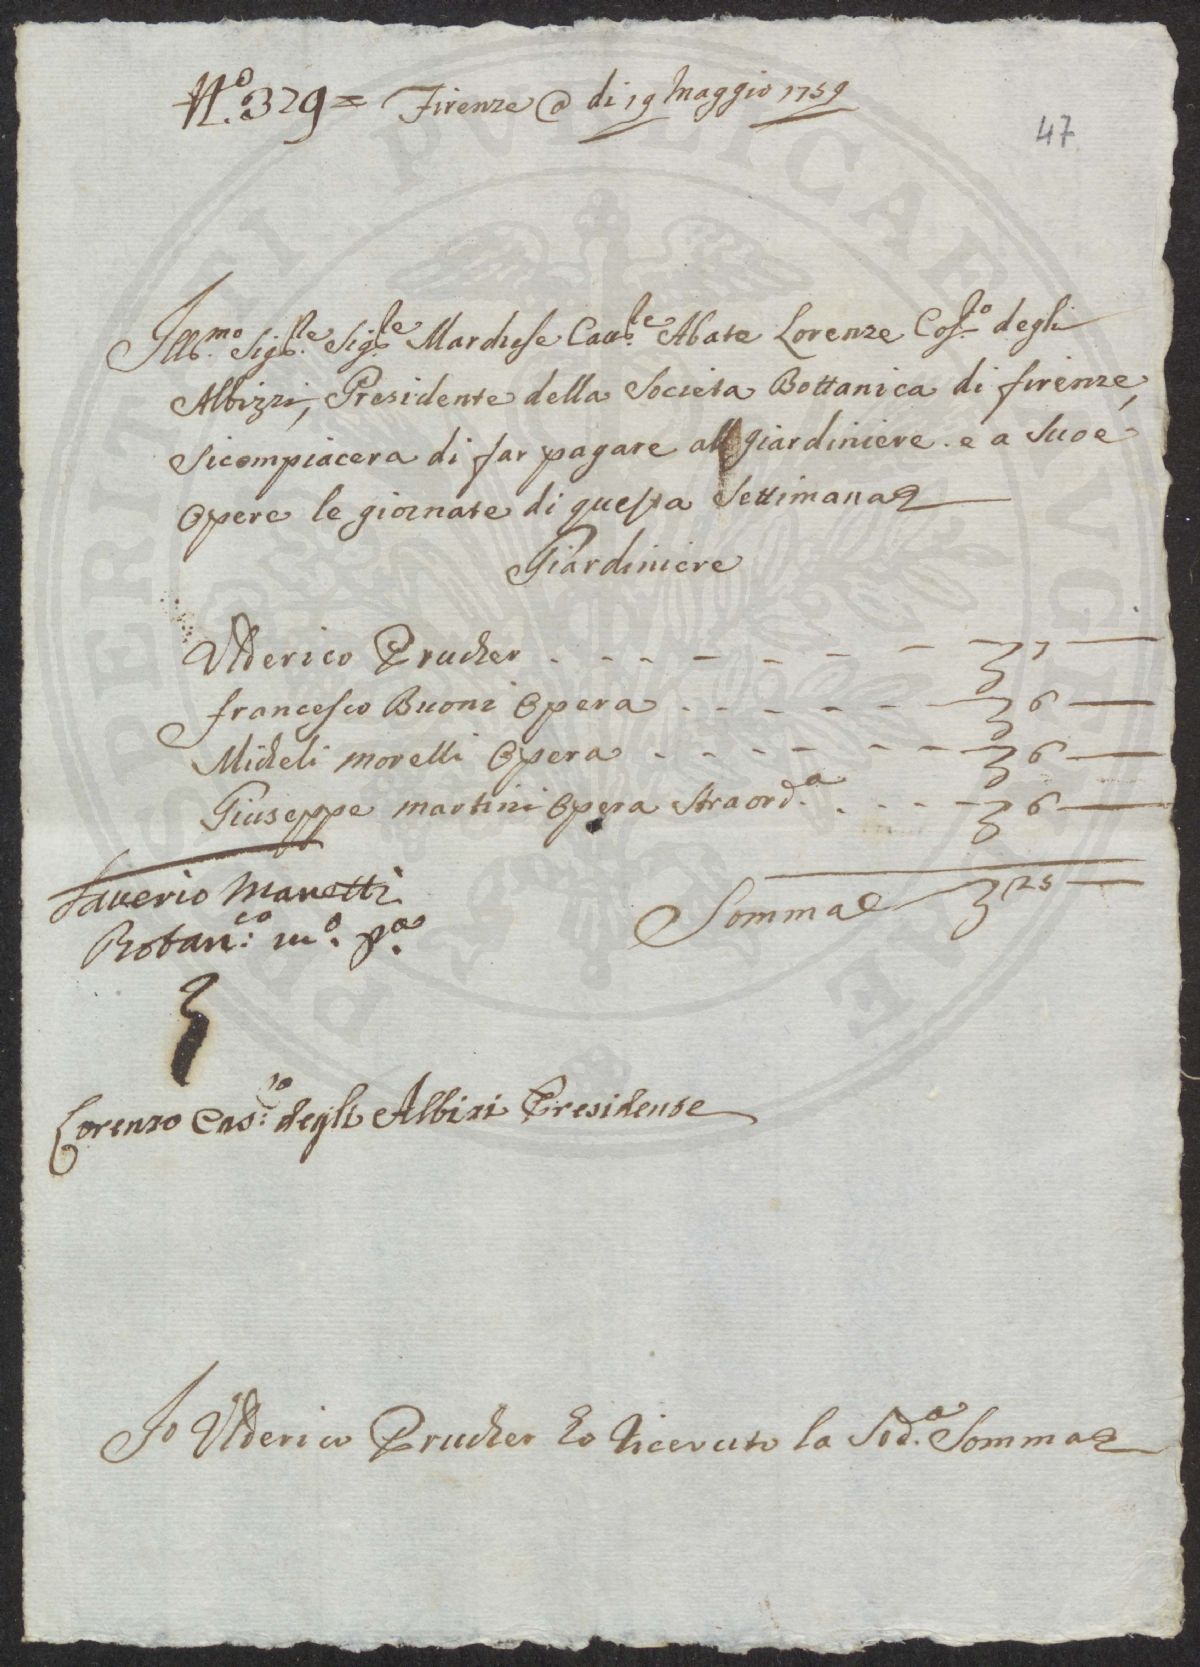 N.o 329 = Firenze @ di 19 Maggio 1759
47
Ill.mo Sig.re Sig.re Marchese Cau.re Abate Lorenzo Cos.mo degli
Albizzi, Presidente della Societa Bottanica di firenze,
si compiacera di far pagare all giardiniere. e a Suoe
Opere le giornate di questa Settimana
Giardiniere
Vlderico Prucher . - - - - - - - - 7 —
francesco Buoni Opera . - - - - - 6 —
Micheli morelli Opera . - - - - - 6 —
Giuseppe martini Opera Straord.a . - - - - 6 —
Somma 25 —
Saverio Manetti
Botan.co m.o p.a
Lorenzo Cos.mo degli Albizi Presidente
Io Vlderico Prucher ho Riceuuto la Sod.a Somma
PROSPERITATI PVBLICAE AVGENDAE